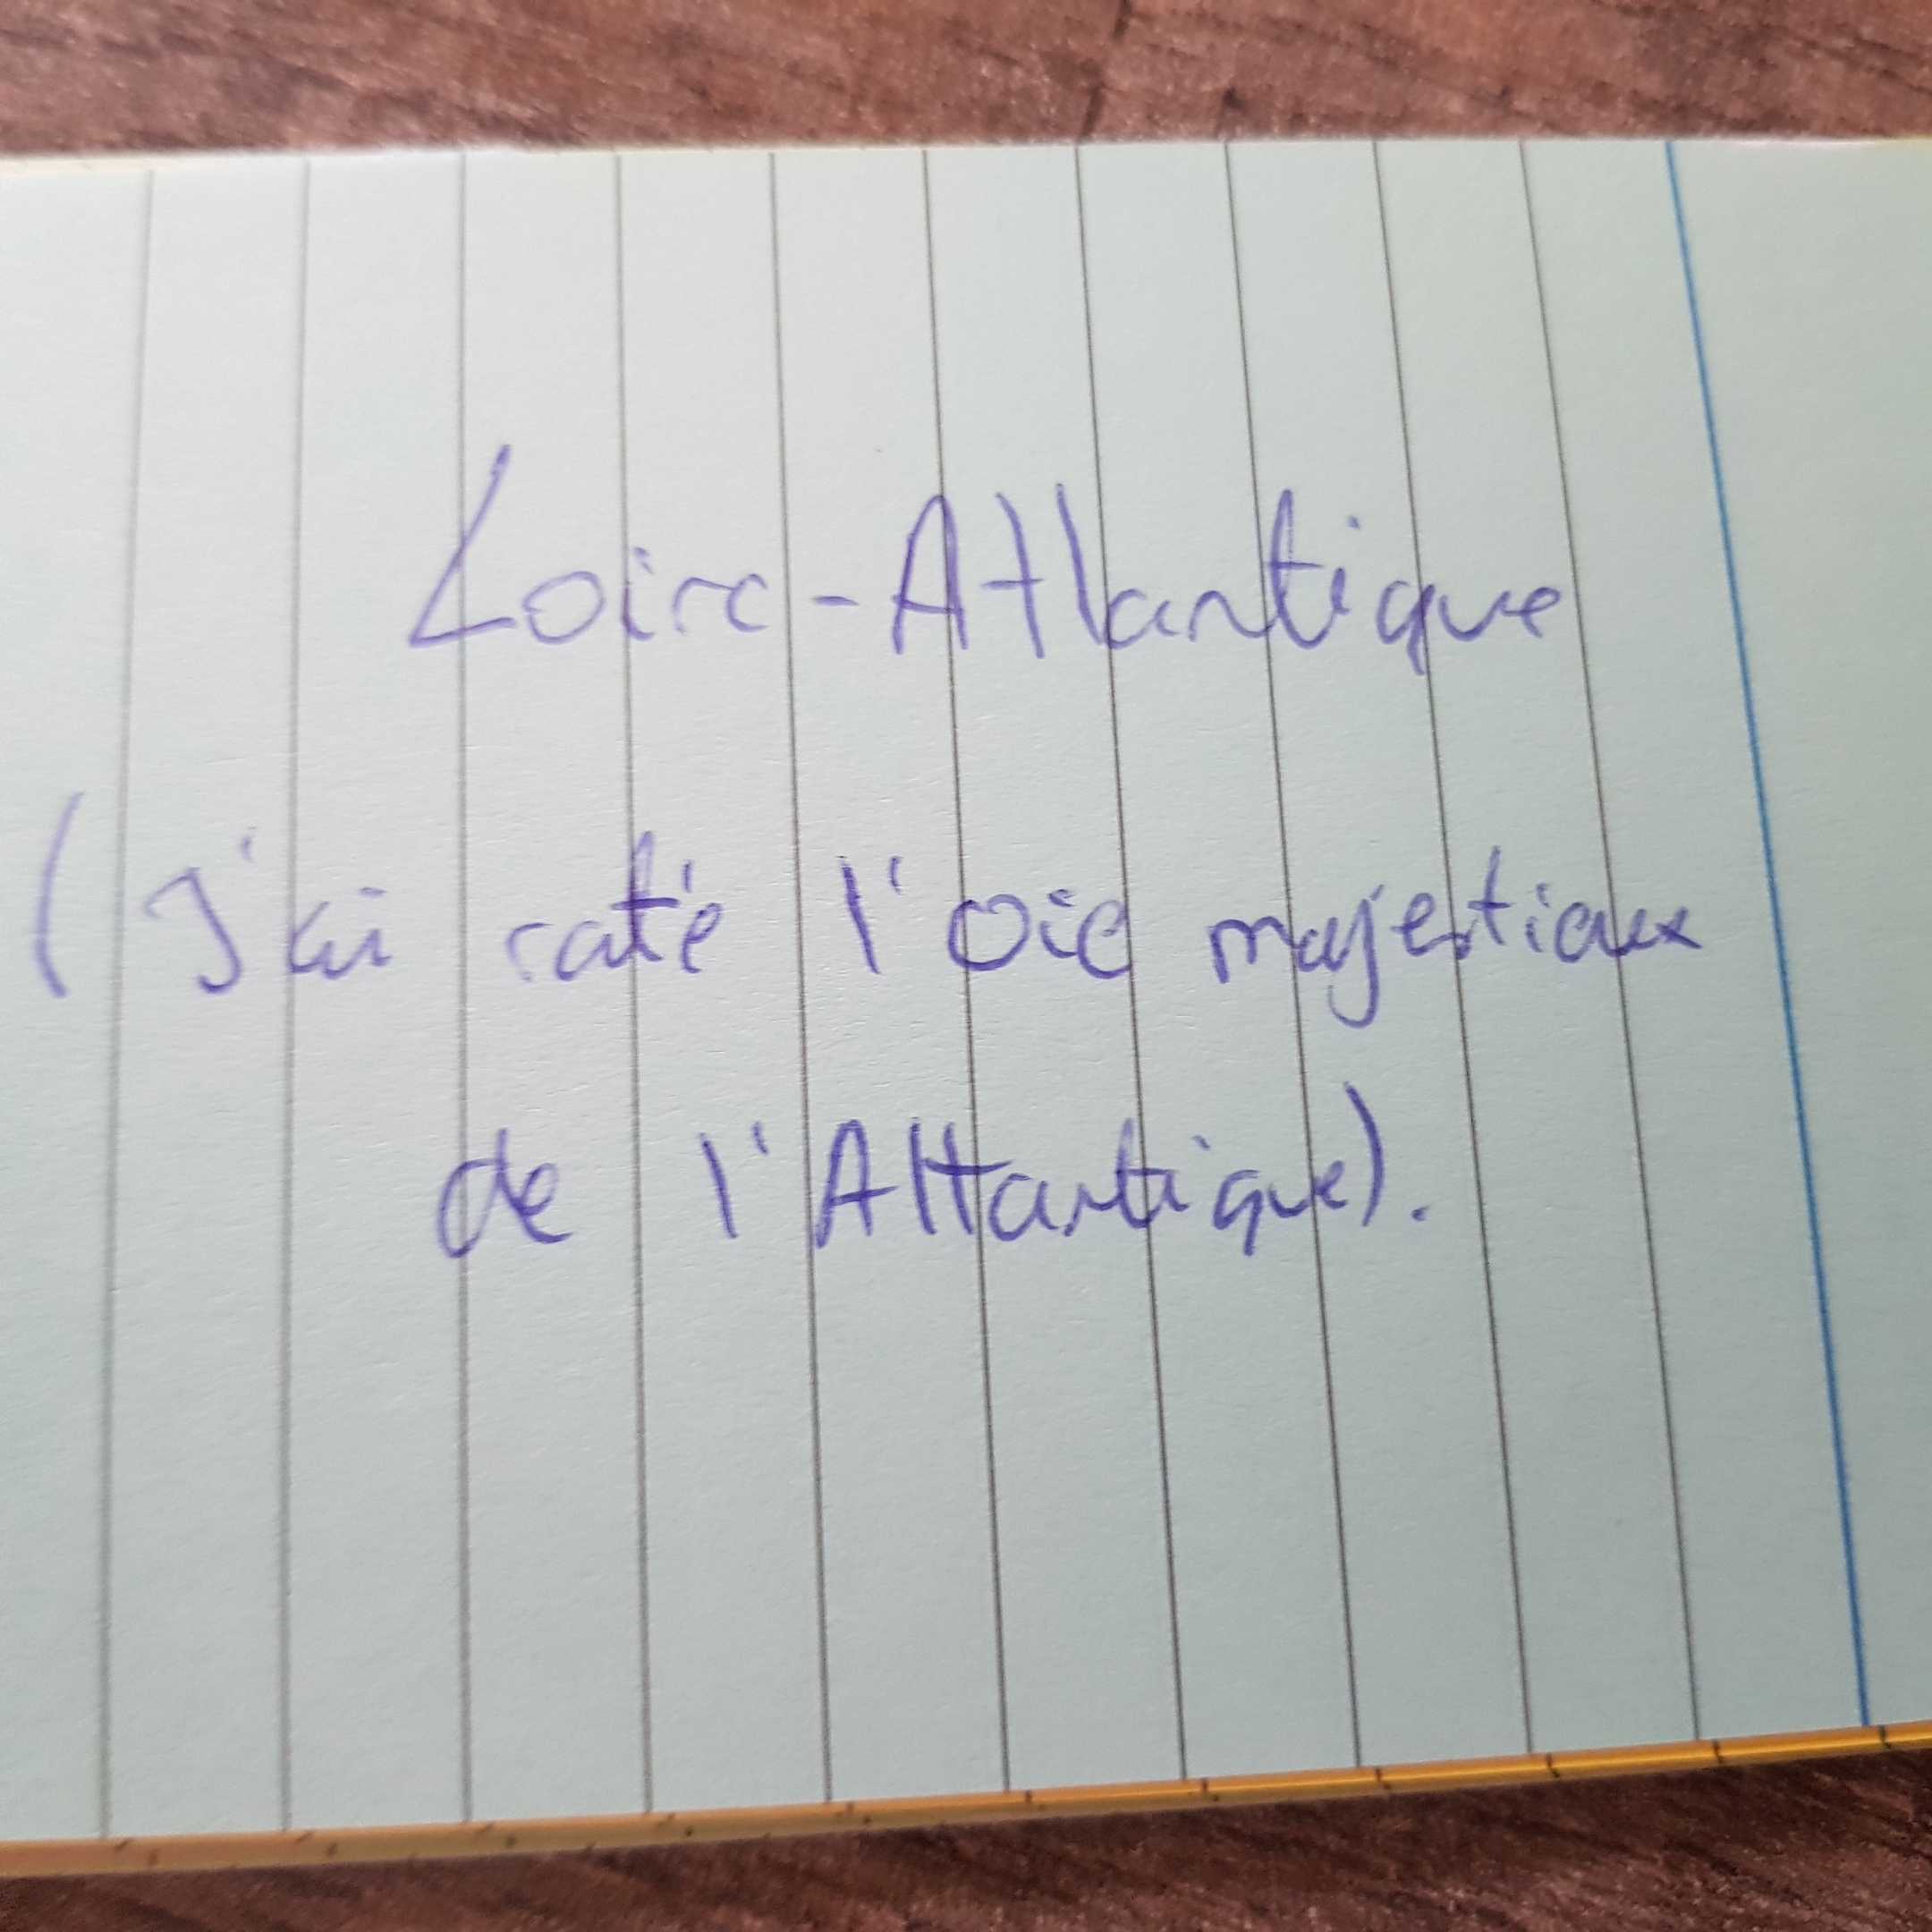 Loire-Atlantique
(J'ai raté l'oie majestiaux
de l'Altantique).